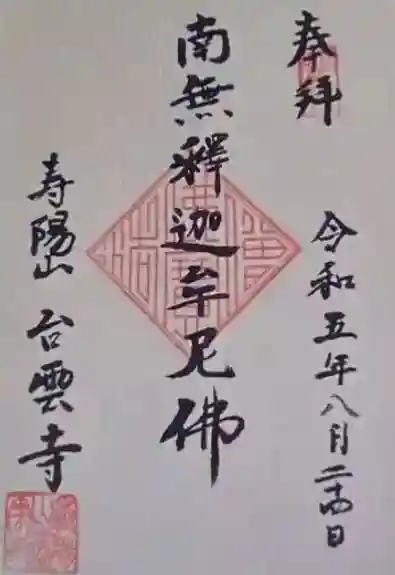 奉拝
令和五年八月二十四日
南無釋迦牟尼佛
寿陽山 台雲寺